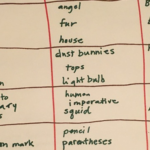 angel
fur
house
dust bunnies
tops
light bulb
n
human
to
imperative
ary
squid
s
pencil
parentheses
on mark